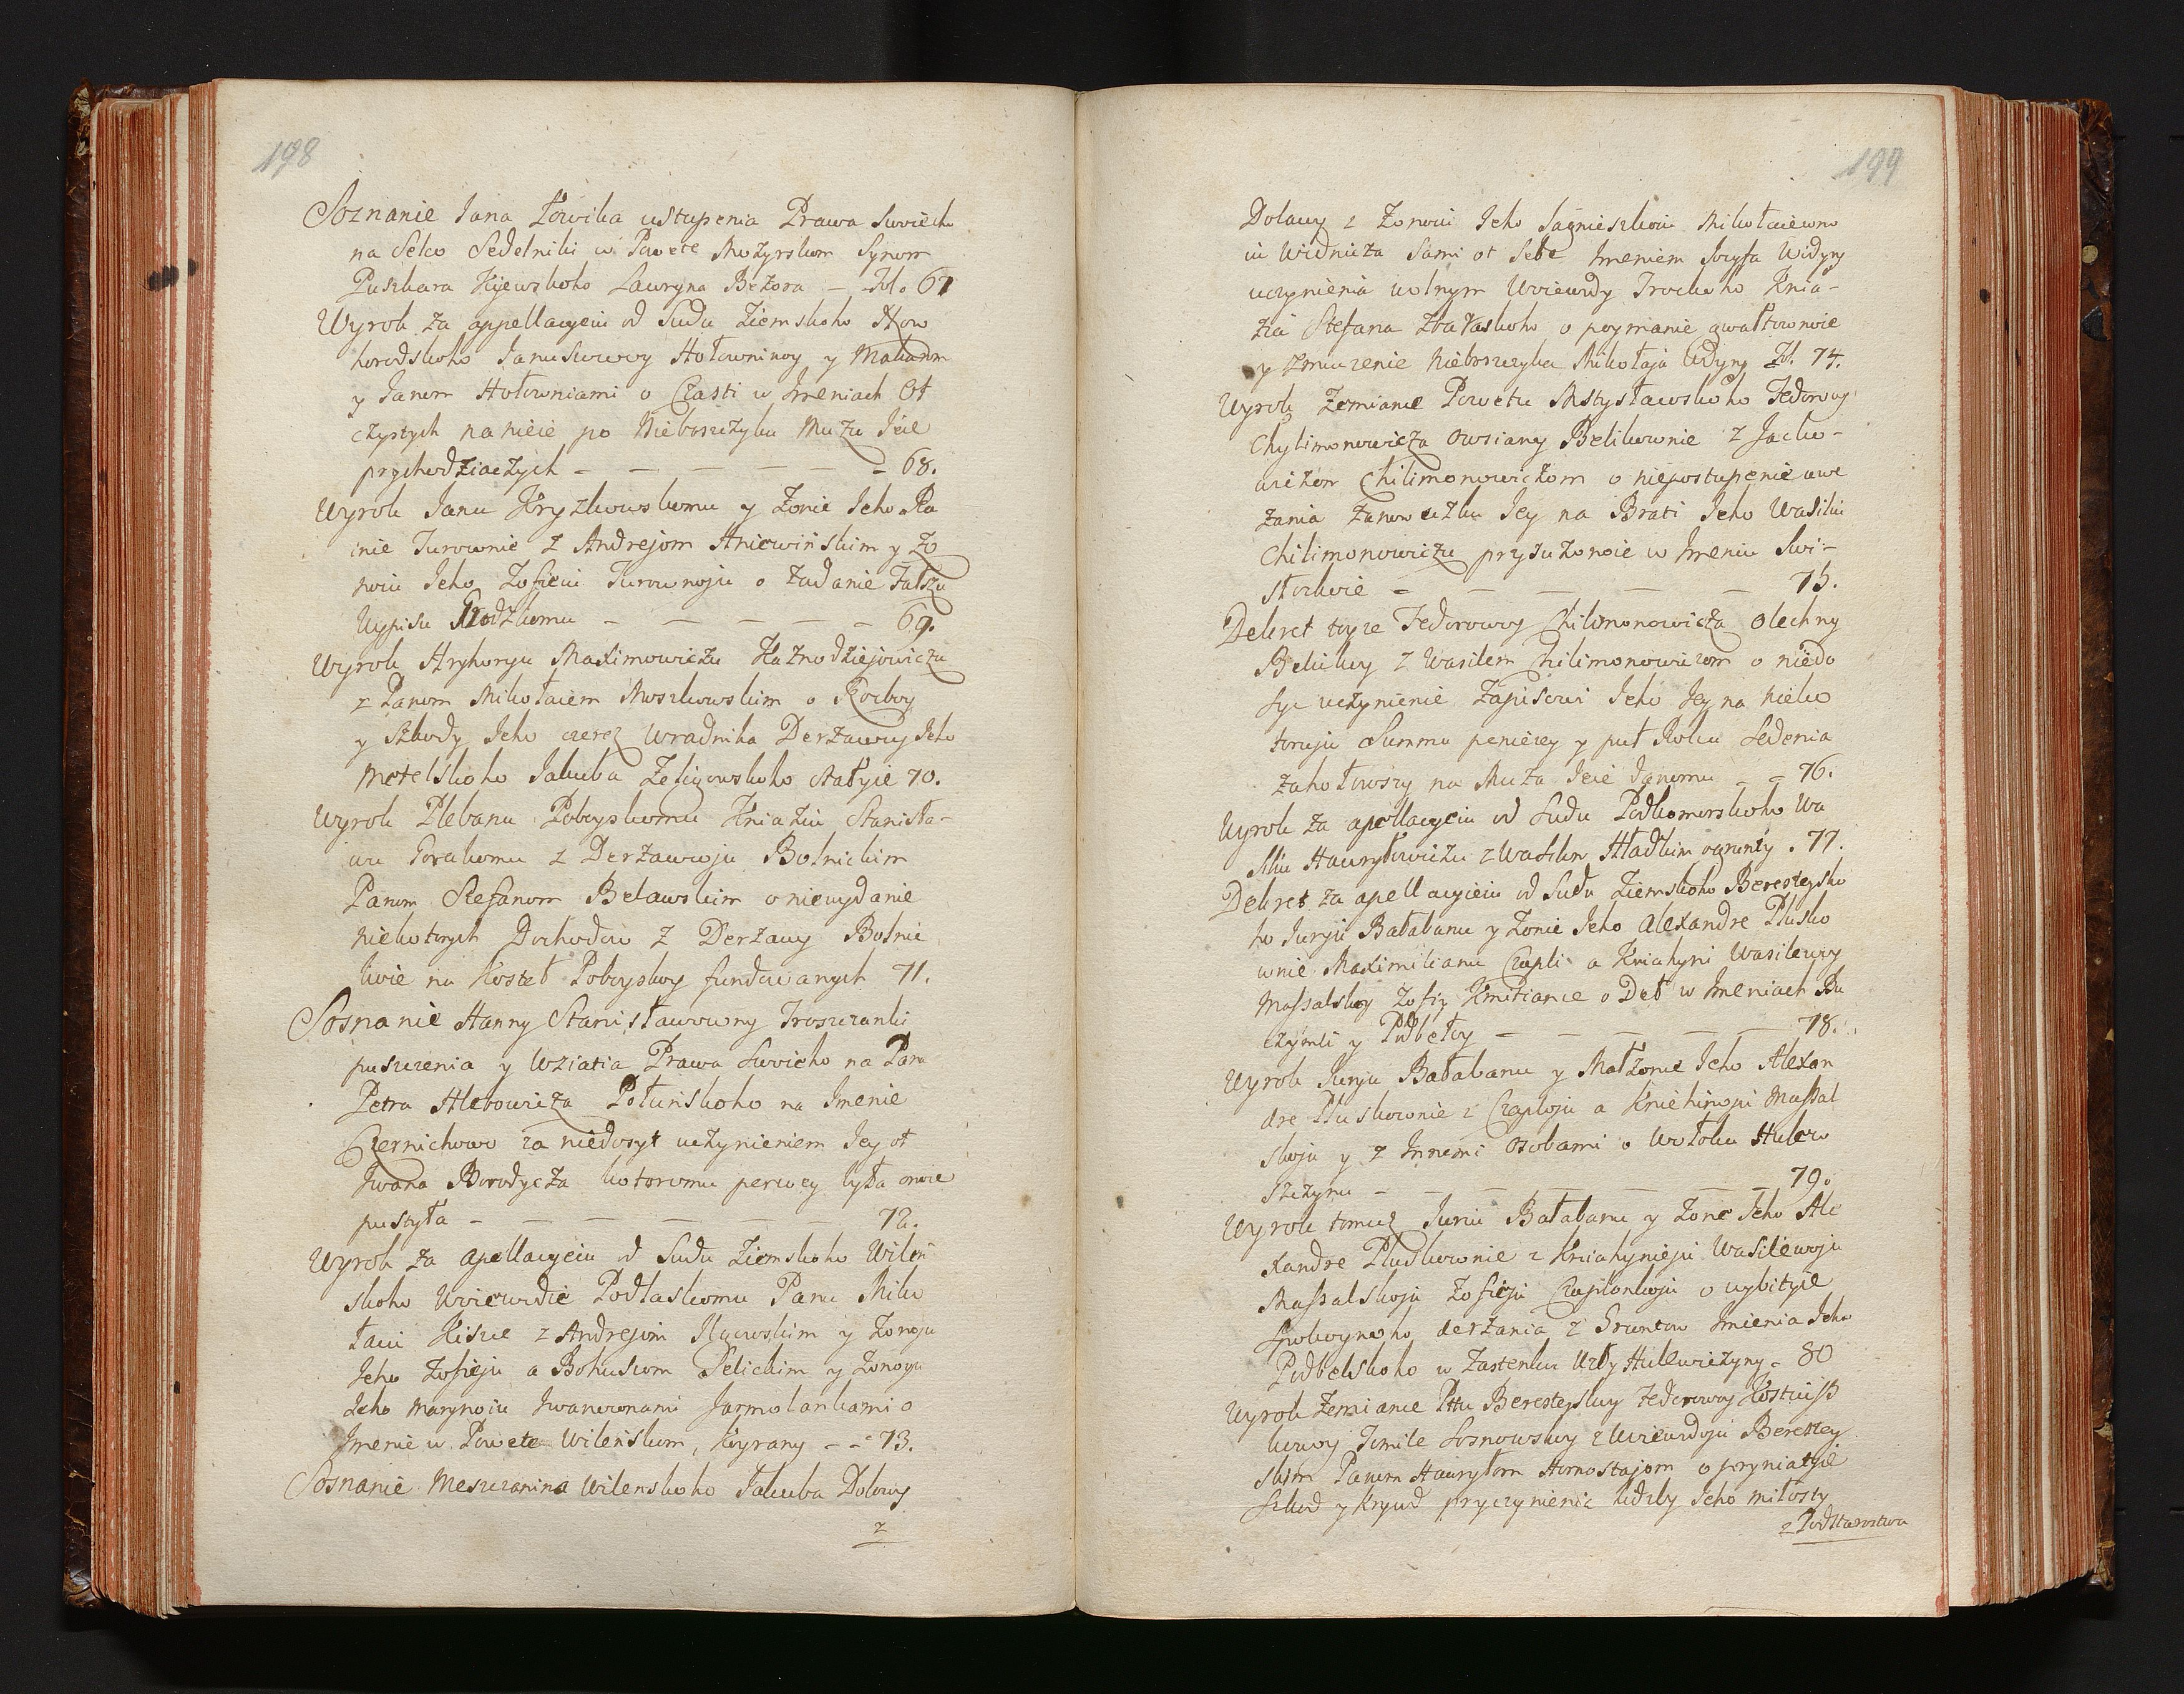 198
Soznanie Jana Łowika ustupenia Prawa Swoieho
na Seło Sedelniki w Powete Mozyrskom Synom
Puszkara Kijewskoho Lawryna Bezora – Fol. 67
Wyrok za appellacyeiu od Sudu Ziemskoho Now
horodskoho Januszowoy Hołowninoy y Malcherom
y Janom Hołowniami o Czasti w Jmeniach Ot
czystych na neie po Nieboszczyku Mużu Jeie
prychodziaczych – – – – – – 68.
Wyrok Janu Kryzkowskomu y Żonie Jeho Ra
inie Turownie z Andrejom Aniewińskim y Żo
noiu Jeho Zofieiu Turownoju o Zadanie Fałszu
Wypisu Grodzkomu – – – – – 69.
Wyrok Hryhoryu Maximowiczu Kaznodziejowiczu
z Panom Mikołaiem Moszkowskim o Rozboy
y Szkody Jeho czerez Wradnika Derżawy Jeho
Metelskoho Jakuba Zeligowskoho stałyie 70.
Wyrok Plebanu Poboyskomu Kniaziu Stanisła-
wu Gorskomu z Derżawcoju Bolnickim
Panom Stefanom Belawskim o niewydanie
niekotorych Dochodow z Derżawy Bolnic
kieie na Kosteł Poboyskoy fundowanych 71.
Sosnanie Hanny Stanisławowny Troszczanki
puszczenia y Wziatia Prawa Swoieho na Pana
Petra Hlebowicza Połuńskoho na Jmenie
Czernichowo za niedosyt uczynieniem Jey ot
Jwana Borodycza kotoromu perwey była onoie
pustyła – – – – – – 72.
Wyrok za apellacyeiu od Sudu Ziemskoho Wileń
skoho Woiewodie Podlaskomu Panu Miko
łaiu Kiszce z Andrejom Ilgowskim y Żonoju
Jeho Zofieju a Bohuszom Selickim y Żonoyu
Jeho Marynoiu Jwanownami Jarmolankami o
Jmenie w Powete Wileńskom, Kyrany – – 73.
Sosnanie Meszczanina Wilenskoho Jakuba Dolowy
z
199
Dolowy z Żonoiu Jeho Jagnieszkoiu Mikołaiewno
iu Widnicza Sami ot Sebe Jmeniem Jozyfa Widyny
uczynienia wolnym Woiewody Trockoho Knia-
zia Stefana Zbaraskoho o poymanie gwałtownoie
y zmuczenie Nieboszczyka Mikołaja Widyny Fol. 74.
Wyrok Zemiance Powetu Mstysławskoho Fedorowoy
Chylimonowicza Owsiany Belikownie z Jacko-
wiczom Chilimonowiczom o niepostupenie uwe
zania Zanowczku Jey na Brati Jeho Wasiliu
Chilimonowiczu prysużonoie w Jmeniu Swi-
stockoie – – – – – 75.
Dekret toyże Fedorowoy Chilimonowicza Olechny
Belickoy z Wasilem Chilimonowiczom o niedo
syt uczynienie Zapisowi Jeho Jey na nieko
toruju Summu peniezey y puł Roku Sedenia
zahołowszy na Muża Jeie Danomu – – 76.
Wyrok za apellacyeiu od Sudu Podkomorskoho Wa
siliu Hawryłowiczu z Waskom Hładkim o grunty . 77.
Dekret za apellacyieiu od Sudu Ziemskoho Beresteysko
ho Juryiu Bałabanu y Żonie Jeho Alexandre Plusko
wnie Maximilianu Czapli a Kniahyni Wasilewoy
Massalskoy Zofiy Kmitiance o Deł w Jmeniach Bu
czymli y Podbełoy – – – – – – 78.
Wyrok Juryu Bałabanu y Małżonce Jeho Alexan
dre Pluskownie z Czaploju a Kniehinoju Massal
skoju y z Jnnemi Osobami o Wołoku Hulew
szczynu – – – – – – 79.
Wyrok tomuż Juriu Bałabanu y Żone Jeho Ale
xandre Pluskownie z Kniahynieju Wasilewoju
Massalskoju Zofieju Czaplonkoju o wybityie
spokoynoho derżania z Gruntow Jmienia Jeho
Podbelskoho w Zastenku Ully Hulewiczyny – 80
Wyrok Zemiance Pttu Beresteyskoy Fedorowoy Kostiusz
kowoy Tomile Sosnowskoy z Woiewodoju Berestey
skim Panom Hawryłom Hornostajom o pryniatyie
szkod y krywd pryczynienie ludzby Jeho Miłosty
z Podstarostwa